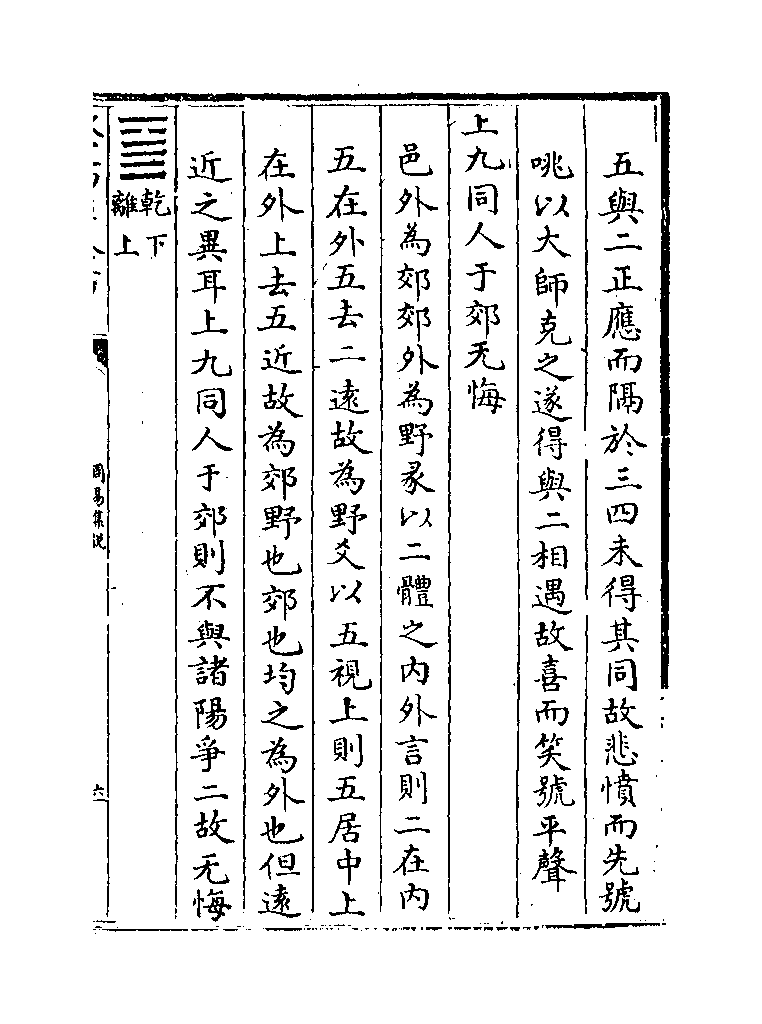 五與二正應而隔於三四未得其同故悲憤而先號
咷以大師克之遂得與二相遇故喜而笑號平聲
上九同人于郊无悔
邑外為郊郊外為野彖以二體之內外言則二在內
五在外五去二逺故為野爻以五視上則五居中上
在外上去五近故為郊野也郊也均之為外也但逺
近之異耳上九同人于郊則不與諸陽爭二故无悔
乾下
離上
周易集説
六